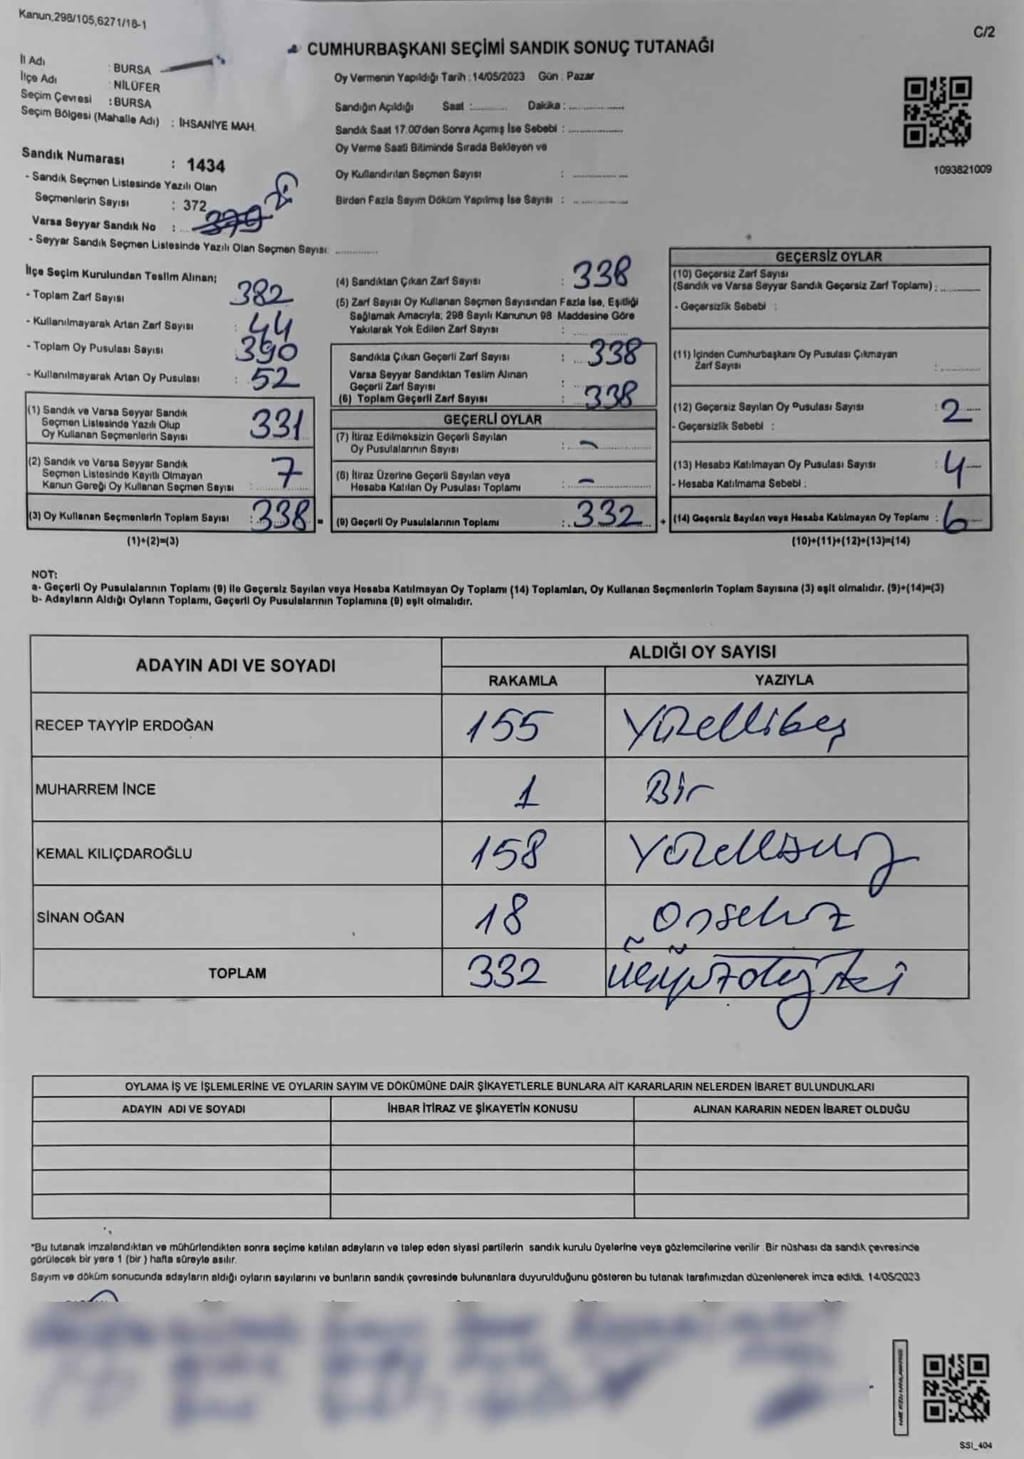 Kanun,298/105,6271/18-1
C/2
CUMHURBAŞKANI SEÇİMİ SANDIK SONUÇ TUTANAĞI
İl Adı : BURSA
İlçe Adı : NİLÜFER
Seçim Çevresi : BURSA
Seçim Bölgesi (Mahalle Adı) : İHSANİYE MAH.
Oy Vermenin Yapıldığı Tarih : 14/05/2023 Gün : Pazar
Sandığın Açıldığı Saat : Dakika :
Sandık Saat 17.00'den Sonra Açımış İse Sebebi :
Oy Verme Saati Bitiminde Sırada Bekleyen ve
Oy Kullandırılan Seçmen Sayısı :
Birden Fazla Sayım Döküm Yapılmış İse Sayısı :
1093821009
Sandık Numarası : 1434
- Sandık Seçmen Listesinde Yazılı Olan
Seçmenlerin Sayısı : 372
Varsa Seyyar Sandık No :
- Seyyar Sandık Seçmen Listesinde Yazılı Olan Seçmen Sayısı:
İlçe Seçim Kurulundan Teslim Alınan;
- Toplam Zarf Sayısı : 382
- Kullanılmayarak Artan Zarf Sayısı : 44
- Toplam Oy Pusulası Sayısı : 390
- Kullanılmayarak Artan Oy Pusulası : 52
(1) Sandık ve Varsa Seyyar Sandık
Seçmen Listesinde Yazılı Olup
Oy Kullanan Seçmenlerin Sayısı : 331
(2) Sandık ve Varsa Seyyar Sandık
Seçmen Listesinde Kayıtlı Olmayan
Kanun Gereği Oy Kullanan Seçmen Sayısı : 7
(3) Oy Kullanan Seçmenlerin Toplam Sayısı : 338 =
(1)+(2)=(3)
(4) Sandıktan Çıkan Zarf Sayısı : 338
(5) Zarf Sayısı Oy Kullanan Seçmen Sayısından Fazla İse, Eşitliği
Sağlamak Amacıyla, 298 Sayılı Kanunun 98 Maddesine Göre
Yakılarak Yok Edilen Zarf Sayısı :
Sandıkta Çıkan Geçerli Zarf Sayısı : 338
Varsa Seyyar Sandıktan Teslim Alınan
Geçerli Zarf Sayısı :
(6) Toplam Geçerli Zarf Sayısı : 338
GEÇERLİ OYLAR
(7) İtiraz Edilmeksizin Geçerli Sayılan
Oy Pusulalarının Sayısı : -
(8) İtiraz Üzerine Geçerli Sayılan veya
Hesaba Katılan Oy Pusulası Toplamı : -
(9) Geçerli Oy Pusulalarının Toplamı : 332 +
GEÇERSİZ OYLAR
(10) Geçersiz Zarf Sayısı
(Sandık ve Varsa Seyyar Sandık Geçersiz Zarf Toplamı) :
- Geçersizlik Sebebi :
(11) İçinden Cumhurbaşkanı Oy Pusulası Çıkmayan
Zarf Sayısı :
(12) Geçersiz Sayılan Oy Pusulası Sayısı : 2
- Geçersizlik Sebebi :
(13) Hesaba Katılmayan Oy Pusulası Sayısı : 4
- Hesaba Katılmama Sebebi :
(14) Geçersiz Sayılan veya Hesaba Katılmayan Oy Toplamı : 6
(10)+(11)+(12)+(13)=(14)
NOT:
a- Geçerli Oy Pusulalarının Toplamı (9) ile Geçersiz Sayılan veya Hesaba Katılmayan Oy Toplamı (14) Toplamları, Oy Kullanan Seçmenlerin Toplam Sayısına (3) eşit olmalıdır. (9)+(14)=(3)
b- Adayların Aldığı Oyların Toplamı, Geçerli Oy Pusulalarının Toplamına (9) eşit olmalıdır.
ADAYIN ADI VE SOYADI
ALDIĞI OY SAYISI
RAKAMLA YAZIYLA
RECEP TAYYİP ERDOĞAN 155 Yüzellibeş
MUHARREM İNCE 1 Bir
KEMAL KILIÇDAROĞLU 158
SİNAN OĞAN 18 Onsekiz
TOPLAM 332
OYLAMA İŞ VE İŞLEMLERİNE VE OYLARIN SAYIM VE DÖKÜMÜNE DAİR ŞİKAYETLERLE BUNLARA AİT KARARLARIN NELERDEN İBARET BULUNDUKLARI
ADAYIN ADI VE SOYADI İHBAR İTİRAZ VE ŞİKAYETİN KONUSU ALINAN KARARIN NEDEN İBARET OLDUĞU
*Bu tutanak imzalandıktan ve mühürlendikten sonra seçime katılan adayların ve talep eden siyasi partilerin sandık kurulu üyelerine veya gözlemcilerine verilir. Bir nüshası da sandık çevresinde
görülecek bir yere 1 (bir ) hafta süreyle asılır.
Sayım ve döküm sonucunda adayların aldığı oyların sayılarını ve bunların sandık çevresinde bulunanlara duyurulduğunu gösteren bu tutanak tarafımızdan düzenlenerek imza edildi. 14/05/2023
SSI_404